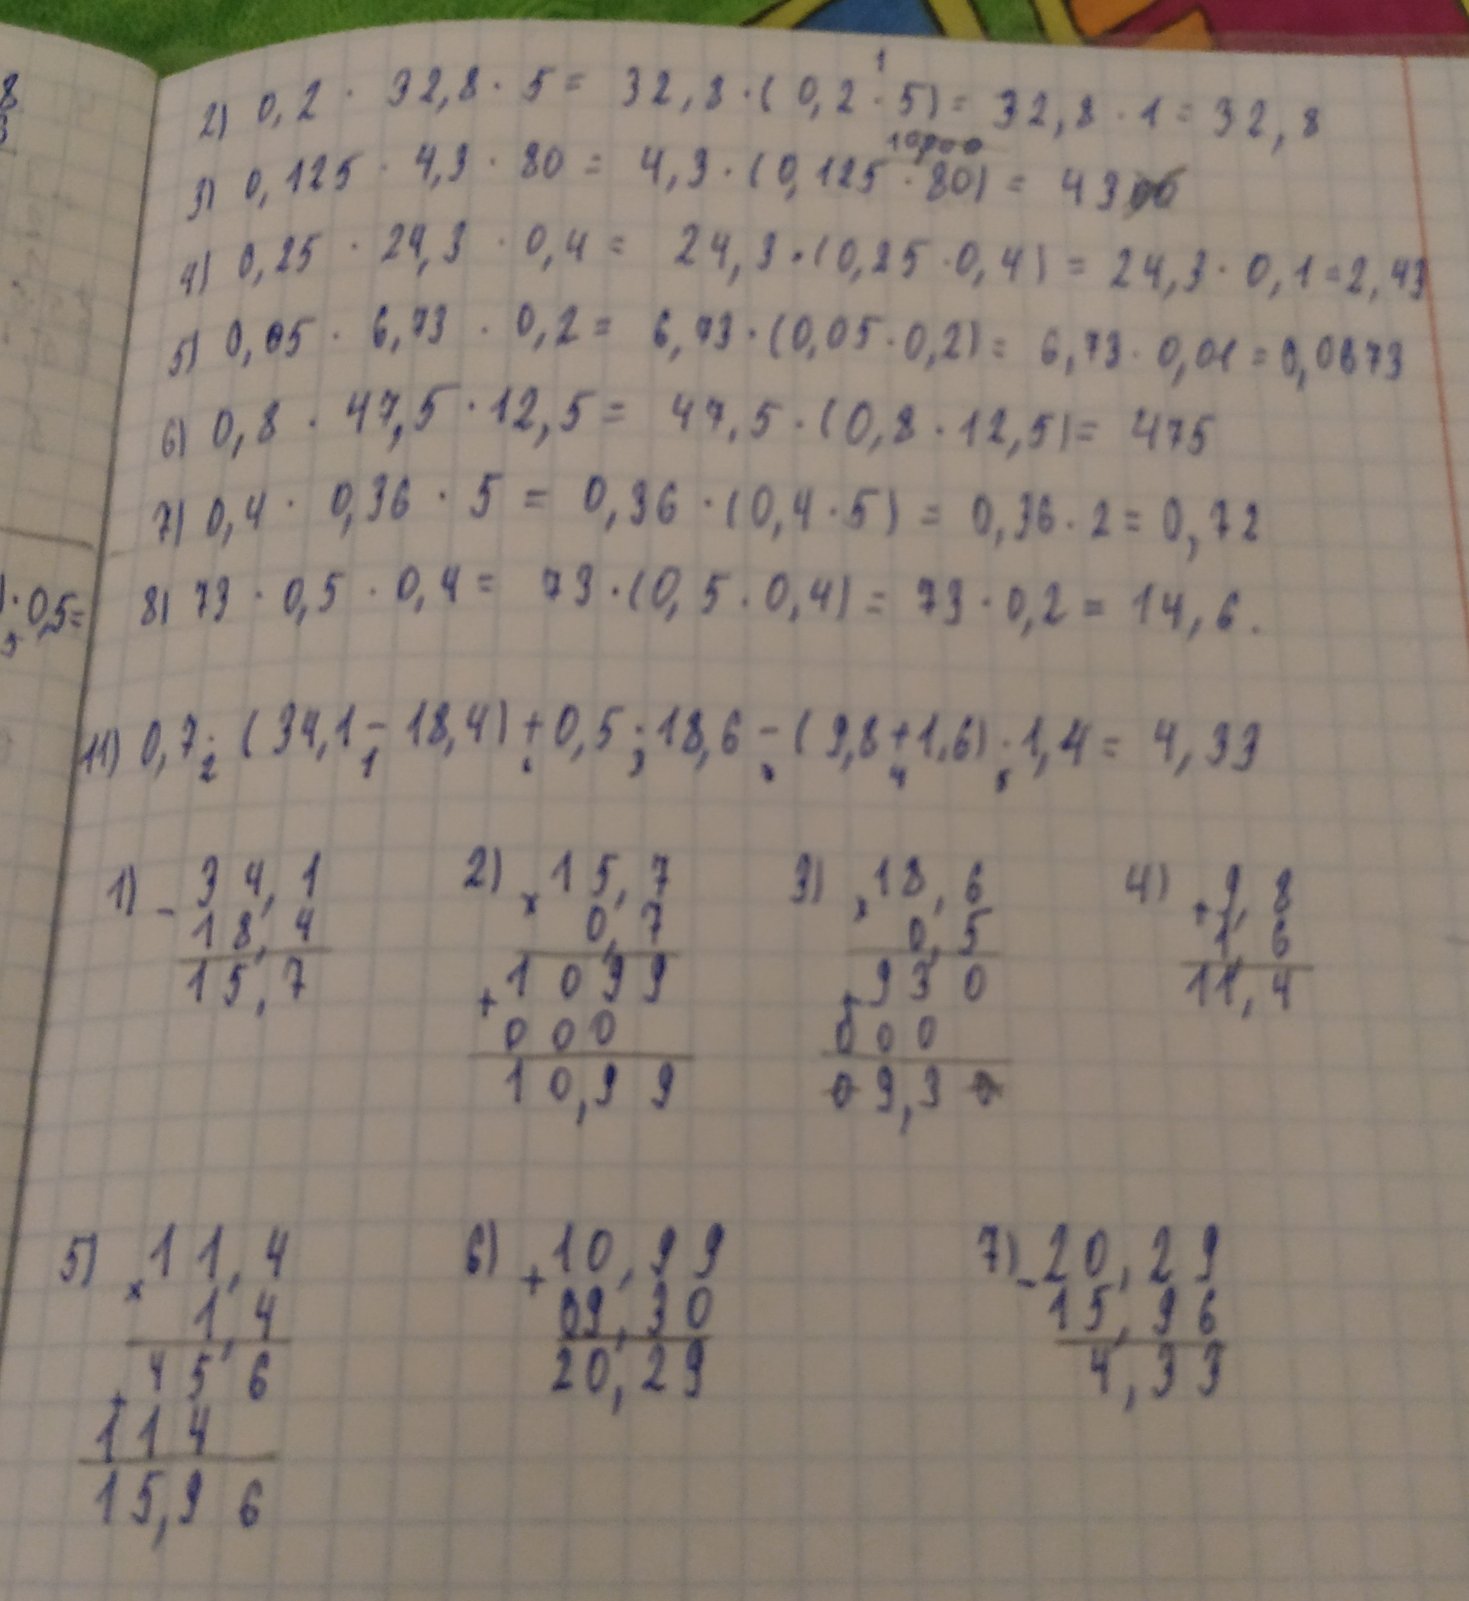 8
3
1
2) 0,2 · 32,8 · 5 = 32,8 · (0,2 · 5) = 32,8 · 1 = 32,8
3) 0,125 · 4,3 · 80 = 4,3 · (0,125 · 80) = 43
4) 0,25 · 24,3 · 0,4 = 24,3 · (0,25 · 0,4) = 24,3 · 0,1 = 2,43
5) 0,05 · 6,73 · 0,2 = 6,73 · (0,05 · 0,2) = 6,73 · 0,01 = 0,0673
6) 0,8 · 47,5 · 12,5 = 47,5 · (0,8 · 12,5) = 475
7) 0,4 · 0,36 · 5 = 0,36 · (0,4 · 5) = 0,36 · 2 = 0,72
) · 0,5 =
8) 73 · 0,5 · 0,4 = 73 · (0,5 · 0,4) = 73 · 0,2 = 14,6.
11) 0,7 · (34,1 - 18,4) + 0,5 · 18,6 - (9,8 + 1,6) · 1,4 = 4,33
2 1 6 3 7 4 5
1) - 34,1 2) × 15,7 3) × 18,6 4) + 9,8
18,4 0,7 0,5 1,6
15,7 + 1099 + 930 11,4
000 000
10,99 09,30
5) × 11,4 6) + 10,99 7) - 20,29
1,4 09,30 15,96
+ 456 20,29 4,33
114
15,96